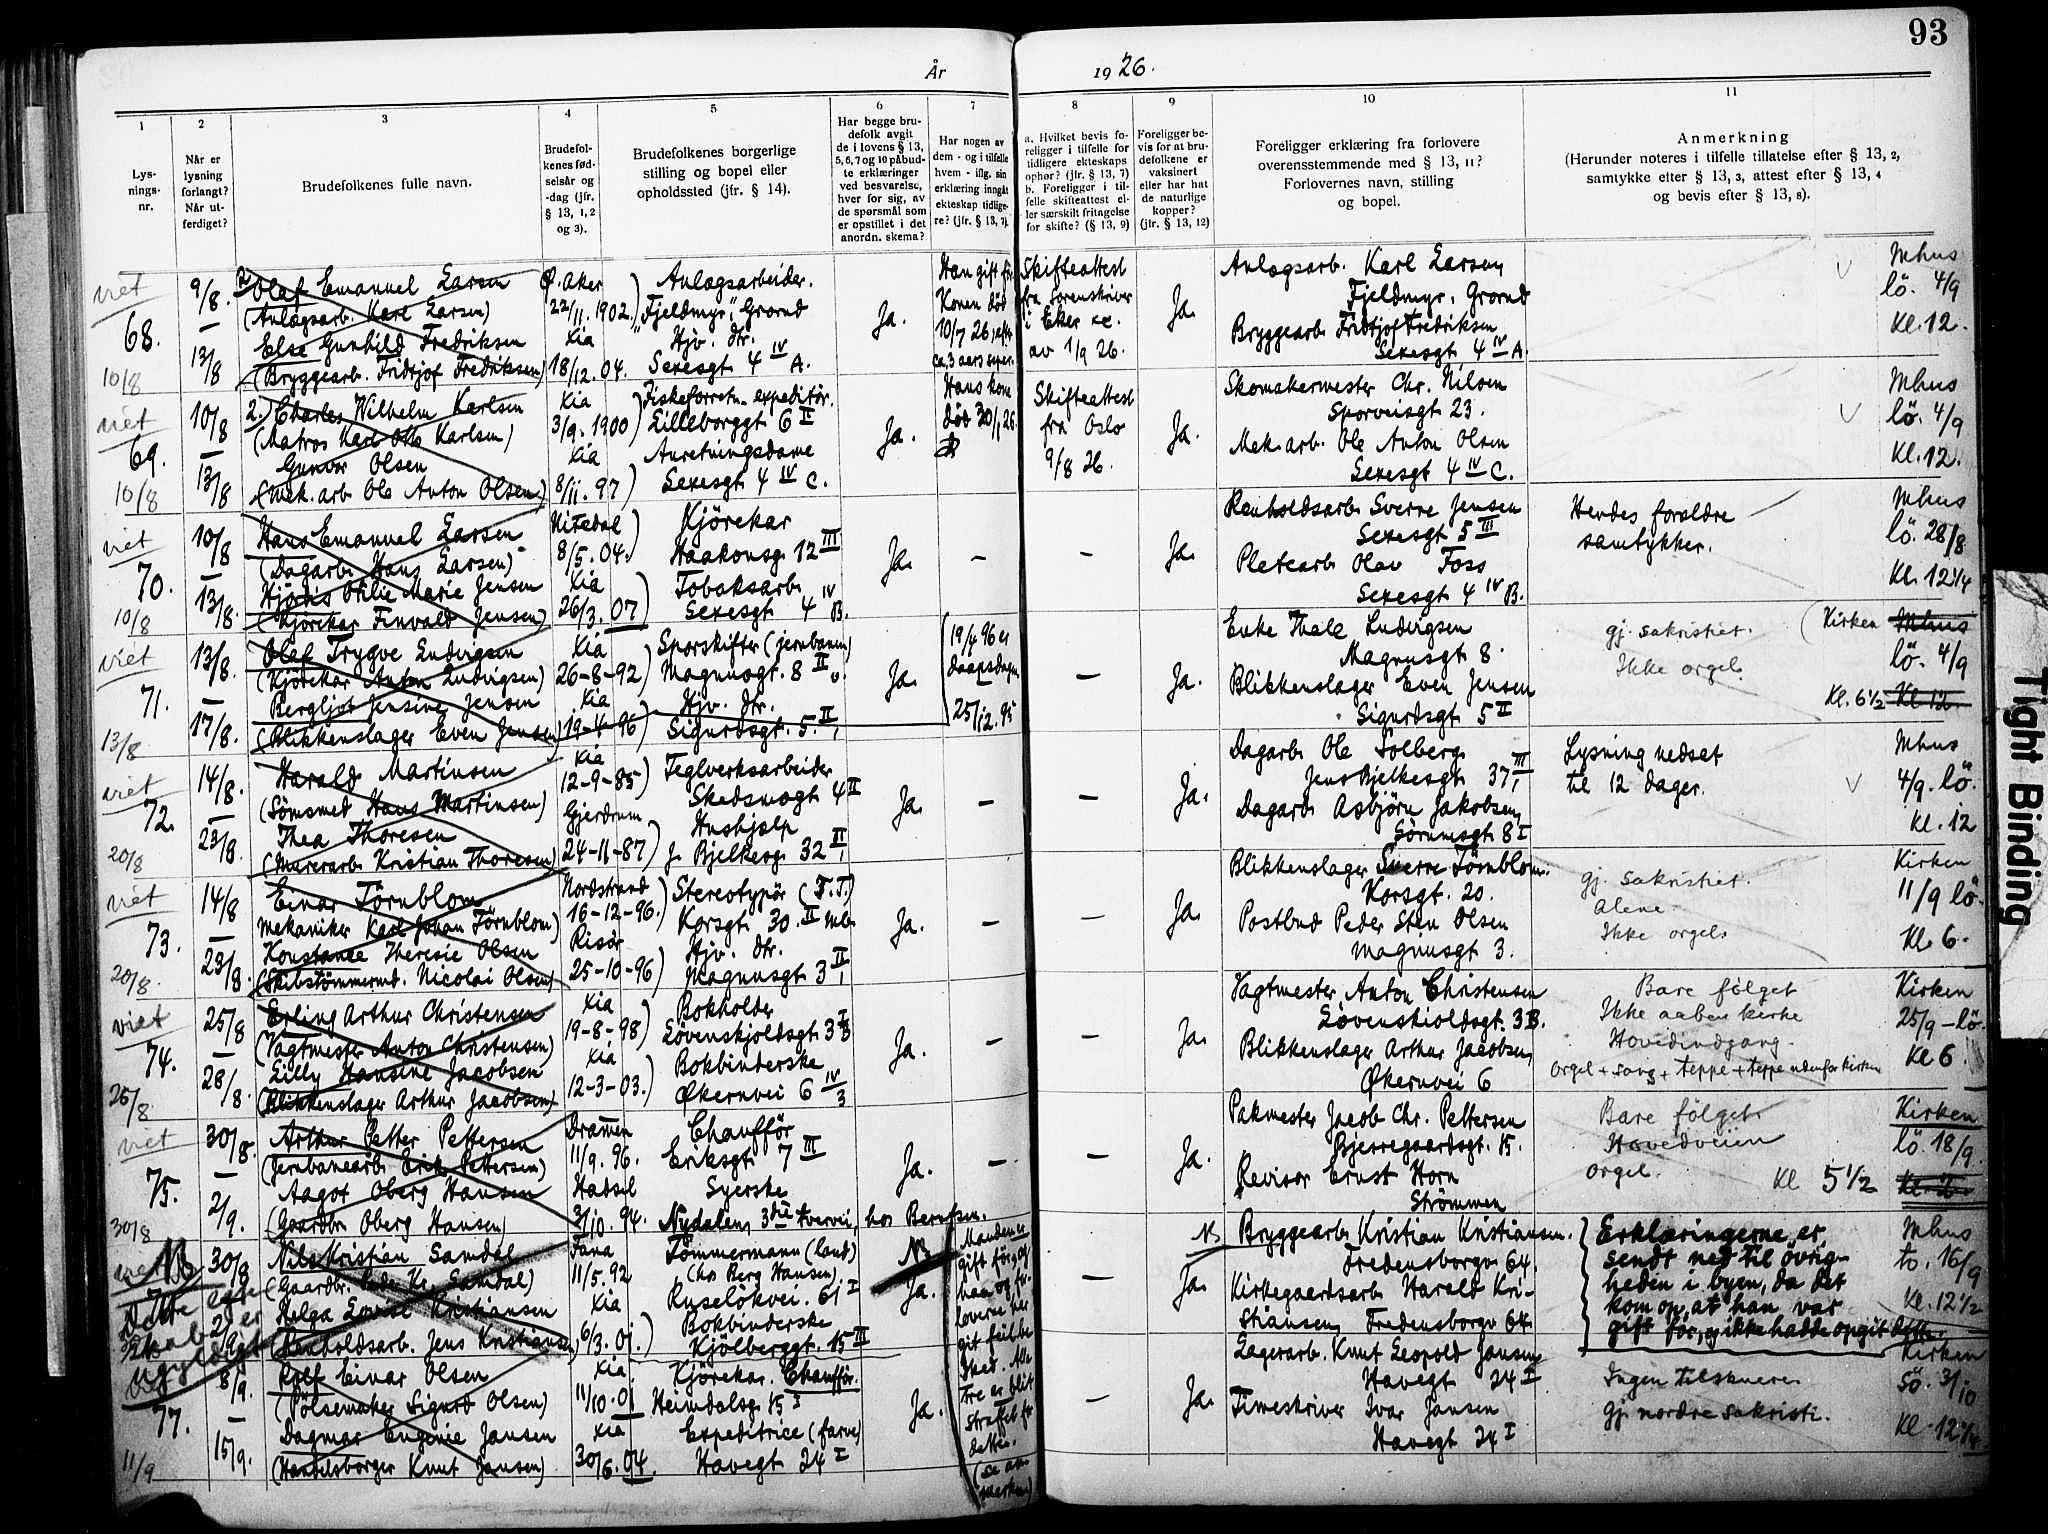 93
År 1926.
1 2 3 4 5 6 7 8 9 10 11
Lys-
nings-
nr.
Når er
lysning
forlangt?
Når ut-
ferdiget?
Brudefolkenes fulle navn.
Brudefol-
kenes fød-
selsår og
-dag (jfr.
§ 13, 1, 2
og 3).
Brudefolkenes borgerlige
stilling og bopel eller
opholdssted (jfr. § 14).
Har begge bru-
defolk avgit
de i lovens § 13,
5, 6, 7 og 10 påbud-
te erklæringer
ved besvarelse,
hver for sig, av
de spørsmål som
er opstillet i det
anordn. skema?
Har nogen av
dem - og i tilfelle
hvem - iflg. sin
erklæring inngått
ekteskap tidlige-
re? (jfr. § 13, 7).
a. Hvilket bevis fo-
religger i tilfelle for
tidligere ekteskaps
ophør? (jfr. § 13, 7)
b. Foreligger i til-
felle skifteattest el-
ler særskilt fritagelse
for skifte? (§ 13, 9)
Foreligger be-
vis for at bru-
defolkene er
vaksinert
eller har hat
de naturlige
kopper?
(jfr. § 13, 12)
Foreligger erklæring fra forlovere
overensstemmende med § 13, 11?
Forlovernes navn, stilling
og bopel.
Anmerkning
(Herunder noteres i tilfelle tillatelse efter § 13, 2,
samtykke efter § 13, 3, attest efter § 13, 4
og bevis efter § 13, 8).
viet
68.
10/8
9/8.
13/8
Olaf Emanuel Larsen
(Anlægsarb. Karl Larsen)
Else Gunhild Fredriksen
(Bryggearb. Fridtjof Fredriksen)
Ø. Aker
22/11. 1902.
Kia
18/12. 04.
Anlægsarbeider.
"Fjeldmyr", Grorud
Hjv. dtr.
Sexesgt 4 IV A.
Ja.
Han gift før
Konen død
10/7 26, eft.
ca. 3 aars separ.
Skifteattest
fra Sorenskriver
i Eker
av 1/9 26.
Ja.
Anlægsarb. Karl Larsen,
Fjeldmyr, Grorud
Bryggearb. Fridtjof Fredriksen
Sexesgt 4 IV A.
Mhus
lö. 4/9
Kl. 12.
viet
69.
10/8
10/8
13/8
2. Charles Wilhelm Karlsen
(Matros Karl Otto Karlsen)
Gunvor Olsen
(Mek. arb. Ole Anton Olsen)
Kia
3/9. 1900
Kia
8/11. 97
Fiskeforretn. expeditør.
Lilleborggt 6 II
Anretningsdame
Sexesgt 4 IV C.
Ja.
Hans kone
død 30/1 26.
Skifteattest
fra Oslo
9/8 26.
Ja.
Skomakermester Chr. Nilsen
Sporveisgt 23.
Mek. arb. Ole Anton Olsen
Sexesgt 4 IV C.
Mhus
lö. 4/9
Kl. 12.
viet
70.
10/8
10/8
13/8.
Hans Emanuel Larsen
(Dagarb. Hans Larsen)
Hjørdis Othlie Marie Jensen
(Kjørekar Finvald Jensen)
Nitedal
8/5. 04.
Kia
26/3. 07
Kjørekar
Haakonsg. 12 III
Tobaksarb.
Sexesgt 4 IV B.
Ja.
Ja.
Renholdsarb. Sverre Jensen
Sexesgt 5 III
Platearb. Olav Foss
Sexesgt 4 IV B.
Hendes forældre
samtykker.
Mhus
lö. 28/8
Kl. 12 1/4
viet
71.
13/8
13/8.
17/8.
Olaf Trygve Ludvigsen
(Kjørekar Anton Ludvigsen)
Bergljot Jensine Jensen
(Blikkenslager Even Jensen)
Kia
26-8-92
Kia
19-4-96
Sporskifter (jernbanen)
Magnusgt. 8 II v.
Hjv. dtr.
Sigurdsgt. 5 II,
Ja.
19/4 96 er
daapsdagen
25/12. 95
Ja.
Enke Thale Ludvigsen
Magnusgt 8.
Blikkenslager Even Jensen
Sigurdsgt 5 II
gj. sakristiet.
Ikke orgel.
Kirken Mhus
lö. 4/9
Kl. 6 1/2 Kl. 12.
viet
72.
20/8
14/8.
23/8.
Harald Martinsen
(Sömsmed Hans Martinsen)
Thea Thoresen
(Murerarb. Kristian Thoresen)
Kia
12-9-85
Gjerdrum
24-11-87
Teglverksarbeider
Skedsmogt 4 II
Hushjælp
J. Bjelkesg. 32 II,
Ja.
Ja.
Dagarb. Ole Solberg
Jens Bjelkesgt 37 III,
Dagarb. Asbjørn Jakobsen,
Sörumsgt. 8 I
Lysning nedsat
til 12 dager.
Mhus
4/9. lö.
Kl. 12
viet
73.
20/8.
14/8
23/8.
Einar Törnblom
Mekaniker Karl Johan Törnblom)
Konstance Theresie Olsen
(Skibstömmermd. Nicolai Olsen)
Nordstrand
16-12-96.
Risör
25-10-96
Stereotypör (T.T.)
Korsgt. 30. II
Hjv. dtr.
Magnusgt 3 II,
Ja.
Ja.
Blikkenslager Sverre Törnblom.
Korsgt. 20.
Postbud Peder Sten Olsen
Magnusgt 3.
gj. sakristiet.
alene.
Ikke orgel.
Kirken
11/9 lö.
Kl. 6.
viet
74.
26/8
25/8
28/8.
Erling Arthur Christensen
(Vagtmester Anton Christensen)
Lilly Hansine Jacobsen
(Blikkenslager Arthur Jacobsen)
Kia
19-8-98
Kia
12-3-03.
Bokholder
Løvenskjoldsgt. 3 B
Bokbinderske
Økernvei 6 IV/3
Ja.
Ja.
Vagtmester Anton Christensen
Løvenskioldsgt. 3 B.
Blikkenslager Arthur Jacobsen,
Økernvei 6
Bare følget
Ikke aaben kirke
Hovedindgang.
orgel + sang + teppe + teppe utenfor kirken
Kirken
25/9 - lö.
Kl 6.
viet
75.
30/8
30/8.
2/9.
Arthur Petter Pettersen
(Jernbanearb. Erik Pettersen)
Aagot Oberg Hansen
(Gaardbr. Oberg Hansen)
Drammen
11/9. 96.
Hadsel
3/10. 94.
Chauffør
Eriksgt. 7 III
Syerske
Nydalens 3die tverrvei, hos Berntsen.
Ja.
Ja.
Pakmester Jacob Chr. Pettersen
Bjerregaardsgt. 15.
Revisor Ernst Horn
Strömmen
Bare følget.
Hovedveien
orgel.
Kl 5 1/2
Kirken
lö. 18/9
viet NB
76.
Dette ekte-
skab er
ugyldigt
30/8
2/9
Nils Kristian Samdal
(Gaardbr. Peder Kr. Samdal)
Helga Lovise Kristiansen
(Renholdsarb. Jens Kristiansen)
Fana
11/5. 92
Kia
6/3. 01.
Tömmermann (land)
(hos Berg Hansen)
Ruseløkvei. 61 I
Bokbinderske
Kjölberggt. 15 III
NB
Ja.
Manden er
gift før, og
han og for-
loverne har
git feil be-
sked. Alle
tre er blit
straffet for
dette.
(se an-
merkn.)
NB
Ja.
Bryggearb. Kristian Kristiansen.
Fredensborgv. 64.
Kirkegaardsarb. Harald Kri-
stiansen, Fredensborgv 64.
Erklæringerne er
sendt ned til övrig-
heden i byen, da det
kom op, at han var
gift før, og ikke hadde opgit dette.
Mhus
to. 16/9
Kl. 12 1/2
viet
77.
11/9
8/9.
15/9.
Rolf Einar Olsen
(Pölsemaker Sigurd Olsen)
Dagmar Eugenie Jansen
(Handelsborger Knut Jansen)
Kia.
11/10. 01
Kia
30/6. 04.
Kjørekar. Chauffør.
Heimdalsg. 15 I
Expeditrice (farve)
Havegt 24 I
Ja.
Ja.
Lagerarb. Knut Leopold Jansen,
Havegt 24 I
Timeskriver Ivar Jansen
Havegt 24 I
Ingen tilskuere
gj. nordre sakristi.
Kirken
Sö. 3/10
Kl. 12 1/4.
Tight Binding